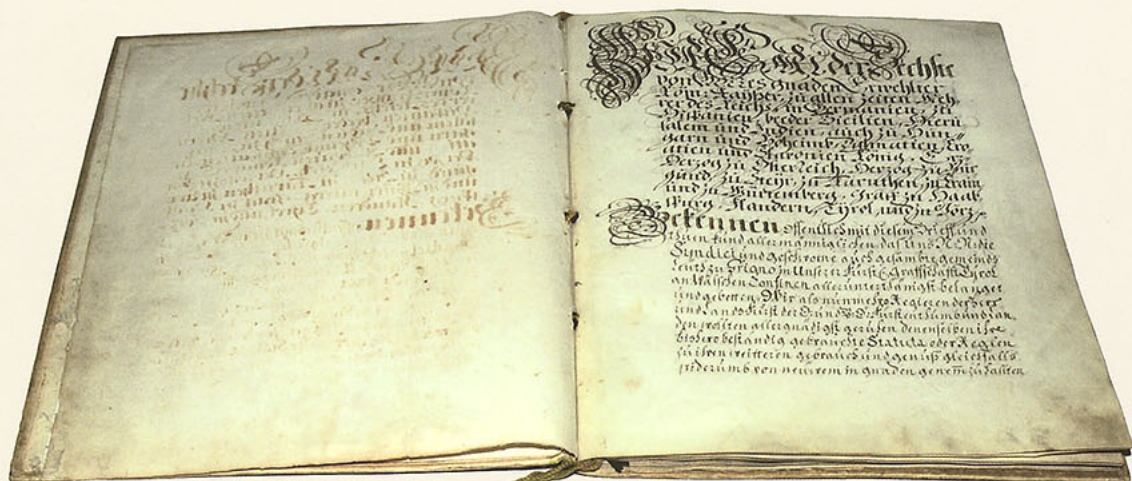 WIR CARL der Sechste
von Gottes gnaden Erwehlter
Röm: Kayser, zu allen Zeiten Meh-
rer des Reichs, in Germanien, zu
Hispanien, beeder Sicilien, Hieru
salem und Indien, auch zu Hun-
garn und Boheimb, Dalmatien, Cro-
atien und Sclavonien König, Ertz-
Herzog zu Österreich, Herzog zu Bur
gund, zu Steyr, zu Kärnthen, zu Crain
und zu Würtemberg, Graff zu Haab
spurg, Flandern, Tyrol, und zu Görz,
Bekennen offentlich mit diesem Brieff und
thuen kund allermänniglichen, daß Uns N: N: die
Syndici und Geschworne auch gesambte gemeinds
Leuth zu Grigno in Unserer Fürstl: Graffschafft Tyrol
an Wälschen Confinen allerunterthänigst belanget
und gebetten, Wir als nunmehro Regierender Herr
und Lands Fürst der
den allergnädigst geruhen denenselben ihre
bishero beständig gebrauchte Statuta oder Reglen
zu ihren weitteren gebrauch und genuß gleichfalls
widerumb von neuem in gnaden genemb zu halten